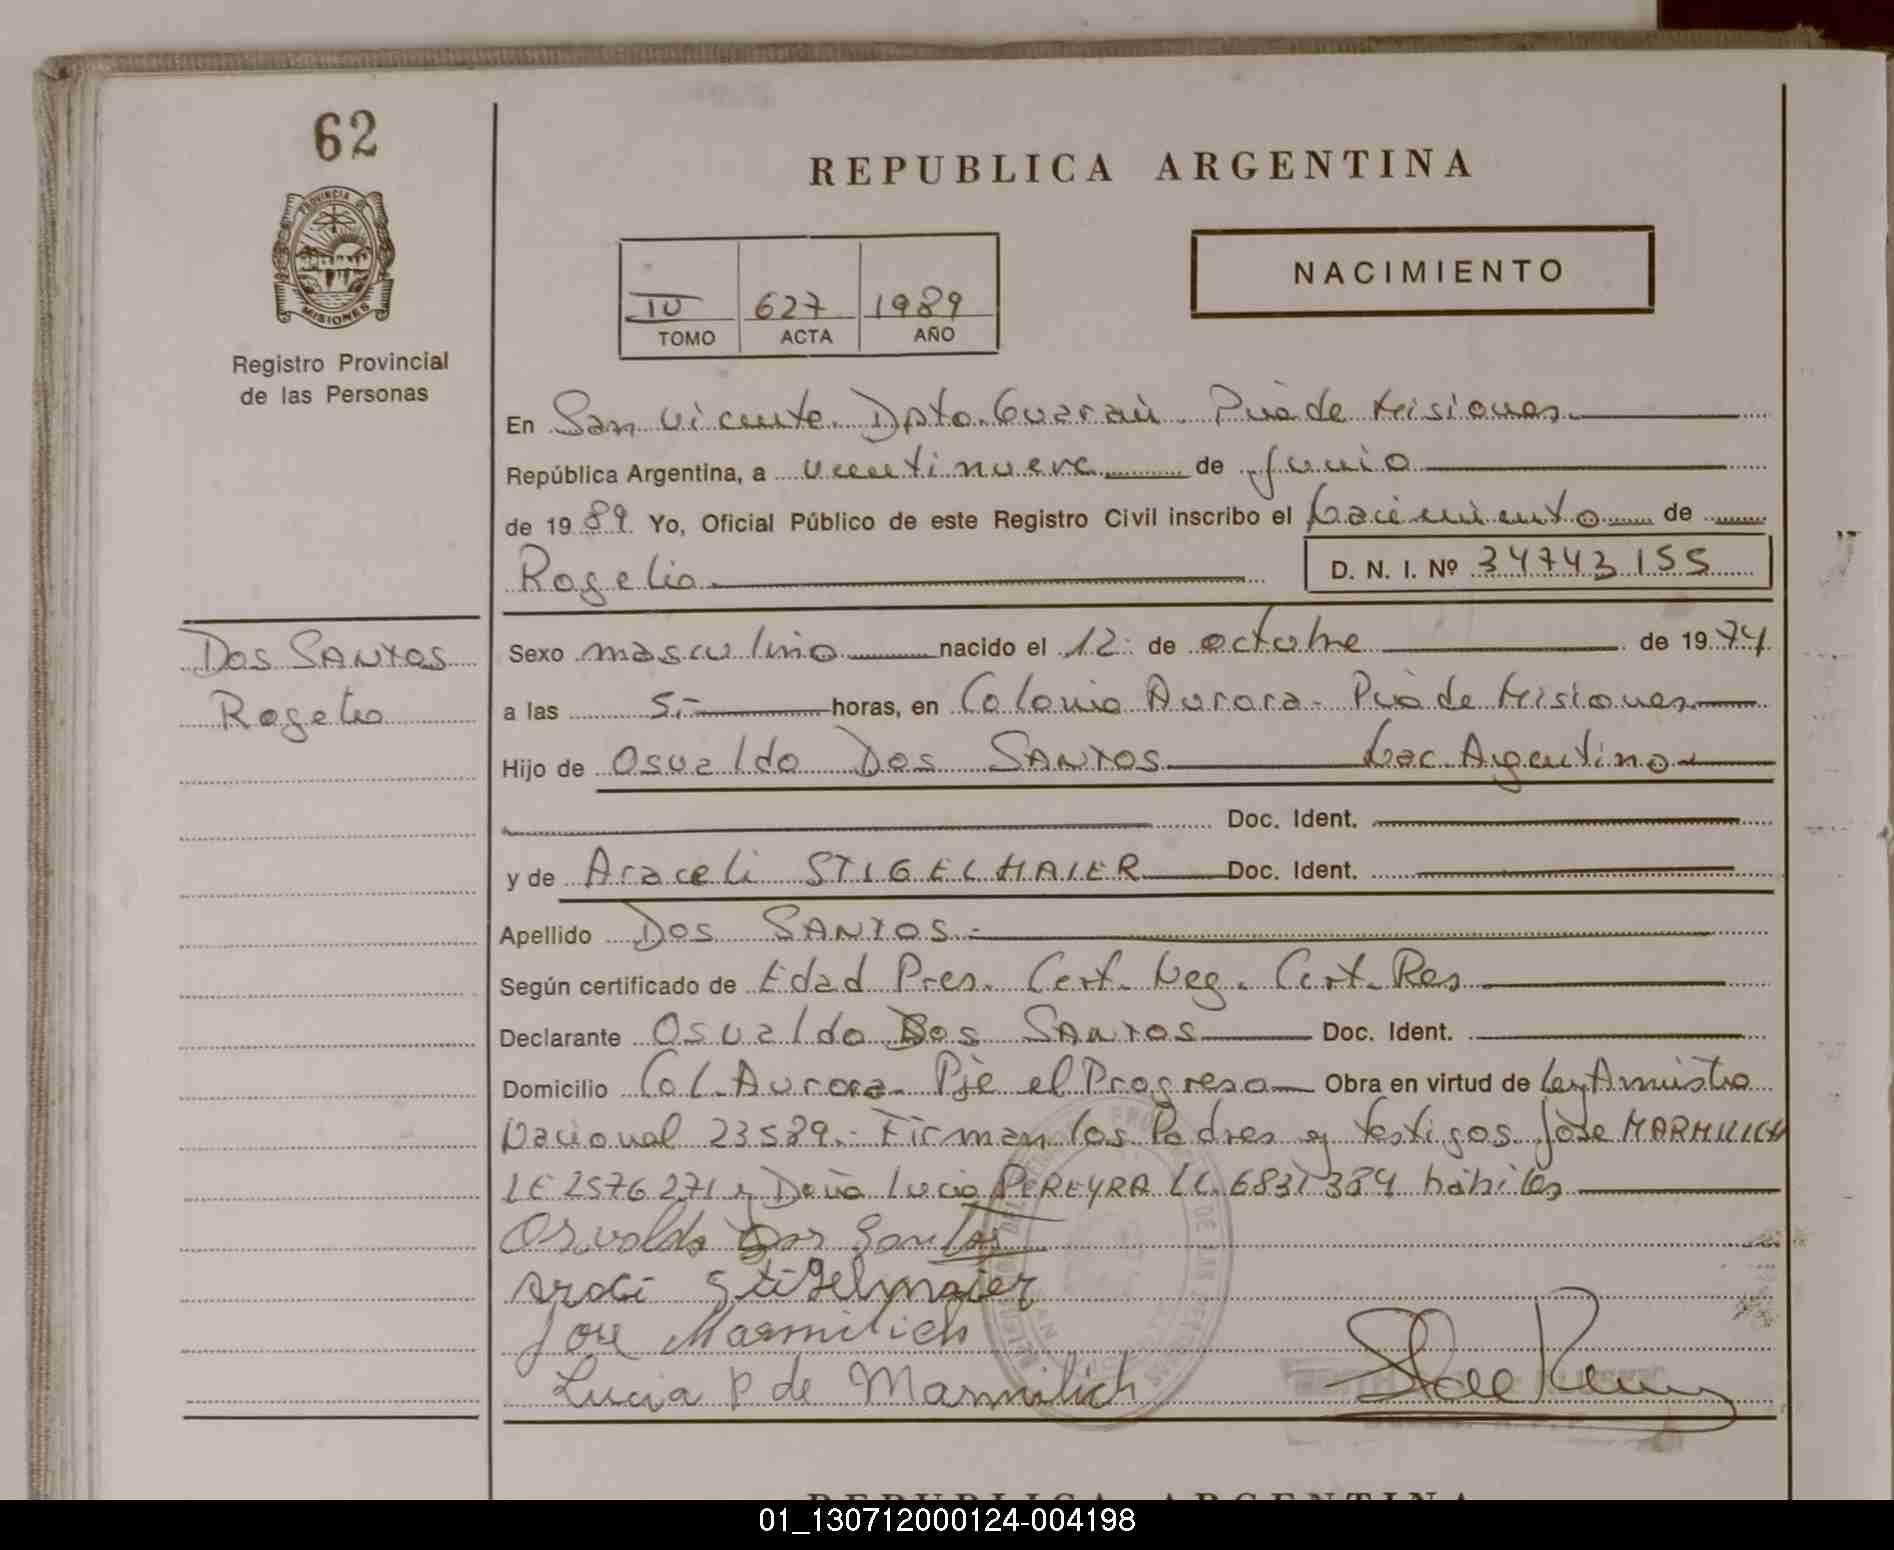 62
PROVINCIA DE
MISIONES
Registro Provincial
de las Personas
REPUBLICA ARGENTINA
NACIMIENTO
IV 627 1989
TOMO ACTA AÑO
En San Vicente Dpto. Guaraní Pcia de Misiones
República Argentina, a veintinueve de junio
de 1989 Yo, Oficial Público de este Registro Civil inscribo el Nacimiento de
Rogelio D. N. I. Nº 34743155
Dos SANTOS
Rogelio
Sexo masculino nacido el 12 de octubre de 1974
a las 5.- horas, en Colonia Aurora - Pcia de Misiones
Hijo de Osvaldo Dos SANTOS Nac Argentino
Doc. Ident.
y de Araceli STIGELMAIER Doc. Ident.
Apellido Dos SANTOS.-
Según certificado de Edad Pres. Cert. Neg. Cert. Res
Declarante Osvaldo Dos SANTOS Doc. Ident.
Domicilio Col. Aurora - Pje el Progreso Obra en virtud de Ley Amnistia
Nacional 23589.- Firman los Padres y testigos José MARMILICH
LE 2576271 y Doña Lucia PEREYRA LC. 6831384 hábiles
Osvaldo Dos Santos
Stigelmaier
Jose Marmilich
Lucia P de Marmilich
REPUBLICA ARGENTINA
01_130712000124-004198